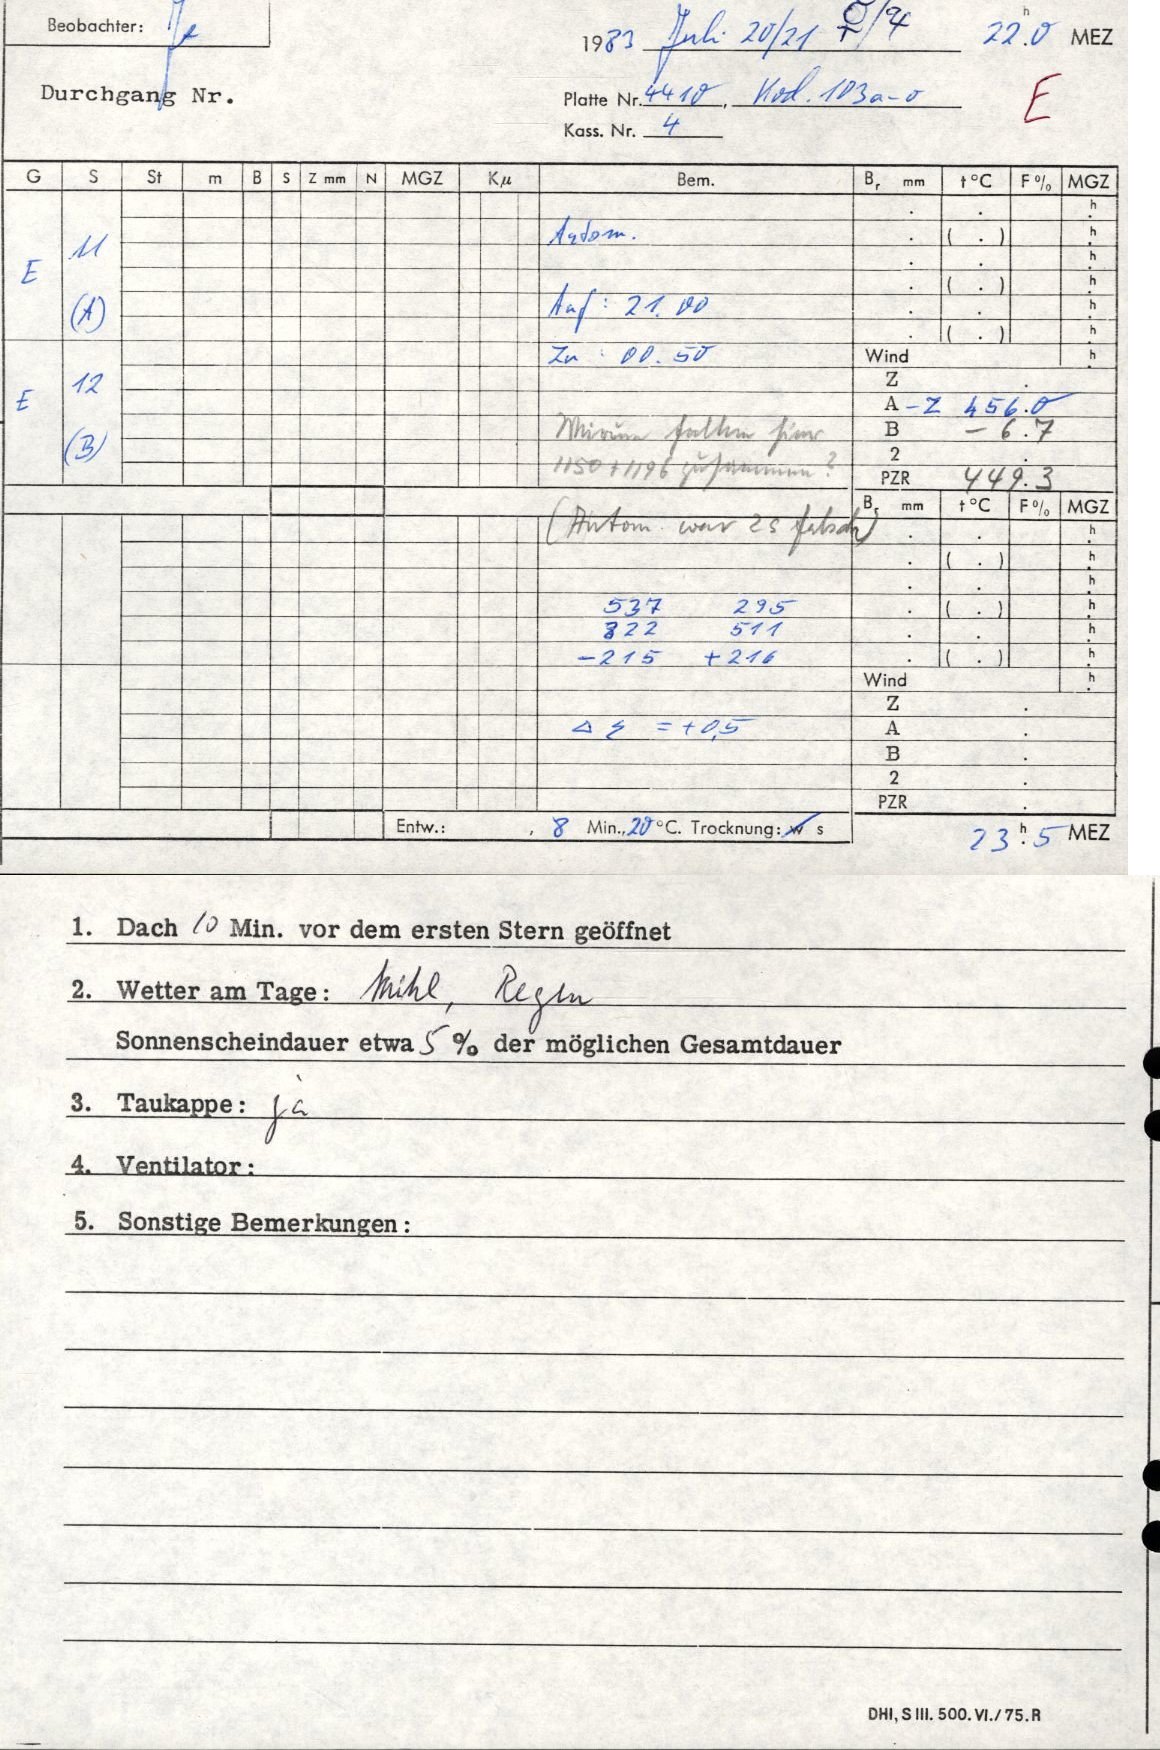 Beobachter:
1983 Juli 20/21 ♀/♃ 22.0 h MEZ
Durchgang Nr.
Platte Nr. 4410, Kod. 103a-o E
Kass. Nr. 4
G S St m B S Z mm N MGZ Kμ Bem. Br mm t°C F% MGZ
. . h
Autom. . ( . ) h
11 . . h
E . ( . ) h
(A) Auf: 21.00 . . h
. ( . ) h
Zu : 00.50 Wind h
12 Z .
E A -Z 456.0
fallen hier B - 6.7
(B) 1150 + 1196 zusammen? 2 .
PZR 449.3
Br mm t°C F% MGZ
(Autom. war 2s falsch) . . h
. ( . ) h
. . h
537 295 . ( . ) h
322 511 . . h
-215 +216 . ( . ) h
Wind h
Z .
Δ ξ = +0,5 A .
B .
2 .
PZR .
Entw.: , 8 Min., 20°C. Trocknung: w s
23.5 h MEZ
1. Dach 10 Min. vor dem ersten Stern geöffnet
2. Wetter am Tage: kühl, Regen
Sonnenscheindauer etwa 5 % der möglichen Gesamtdauer
3. Taukappe: ja
4. Ventilator:
5. Sonstige Bemerkungen:
DHI, S III. 500. VI./75. R